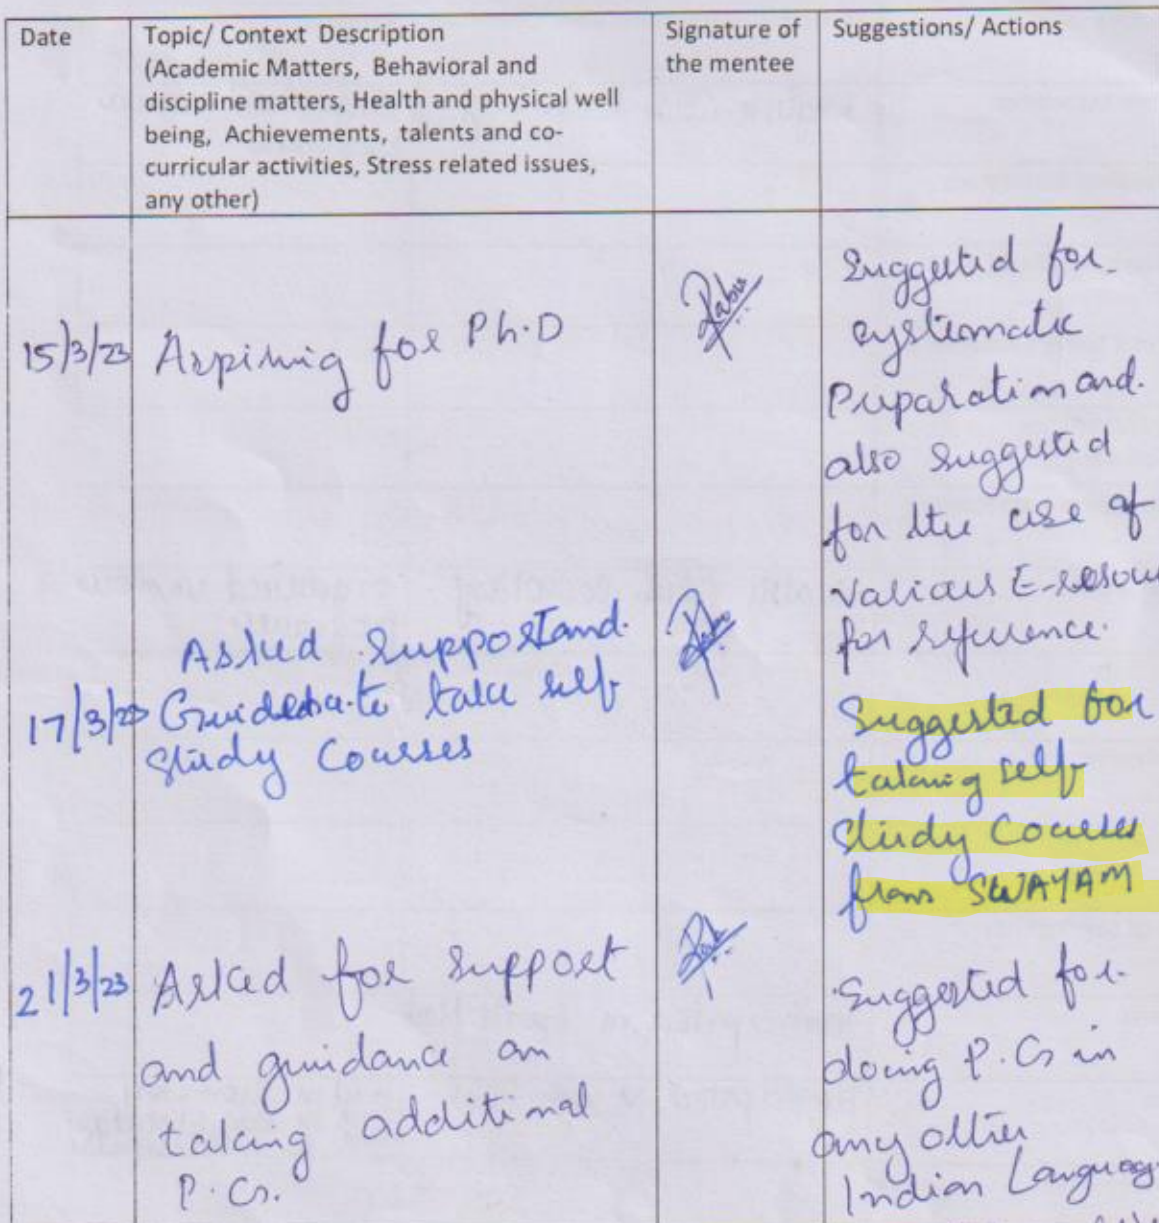 Date
Topic/ Context Description
(Academic Matters, Behavioral and
discipline matters, Health and physical well
being, Achievements, talents and co-
curricular activities, Stress related issues,
any other)
Signature of
the mentee
Suggestions/ Actions
15/3/23
Aspiring for Ph.D
Suggested for
systematic
Preparation and
also suggested
for the use of
various E-resou
for reference.
17/3/23
Asked Support and
Guidance to take self
Study Courses
Suggested for
taking self
Study Courses
from SWAYAM
21/3/23
Asked for support
and guidance on
taking additional
P.G.
Suggested for
doing P.G in
any other
Indian Languag